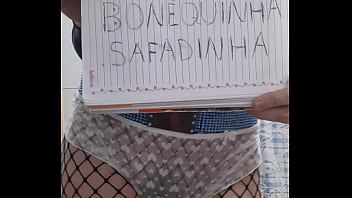 BONEQUINHA
SAFADINHA